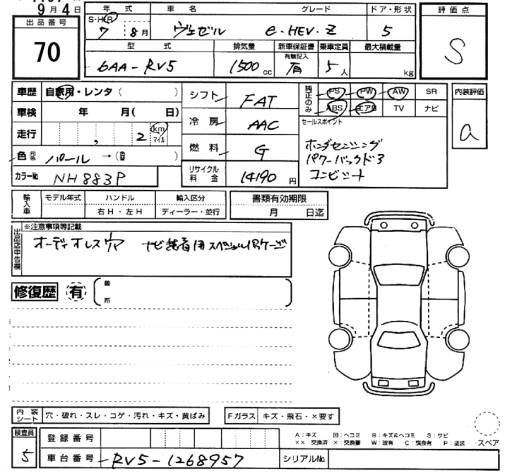 9月4日
出品番号
70
年式 車名 グレード ドア・形状 評価点
S・H・R 7年 8月 ヴェゼル e:HEV・Z 5 S
型式 排気量 新車保証書 乗車定員 最大積載量
有無記入
6AA-RV5 1500cc 有 5人 kg
車歴 自家用・レンタ( ) シフト FAT 純正のみ PS PW AW SR 内装評価
車検 年 月( 日) 冷房 AAC ABS エアB TV ナビ a
走行 , 2 km マイル セールスポイント
色 パール → ( ) 燃料 G ホンダセンシング
カラーNo. NH883P リサイクル料金 14190円 パワーバックドア
コンビシート
輸入車 モデル年式 ハンドル 輸入区分 書類有効期限
年 右H・左H ディーラー・並行 月 日迄
※注意事項等記載
オーディオレス車 ナビ装着用スペシャルパッケージ
修復歴 有 箇所
内装シート 穴・破れ・スレ・コゲ・汚れ・キズ・黄ばみ Fガラス キズ・飛石・×要す スペアー
検査員 5 登録番号
車台番号 RV5-1268957 シリアルNo.